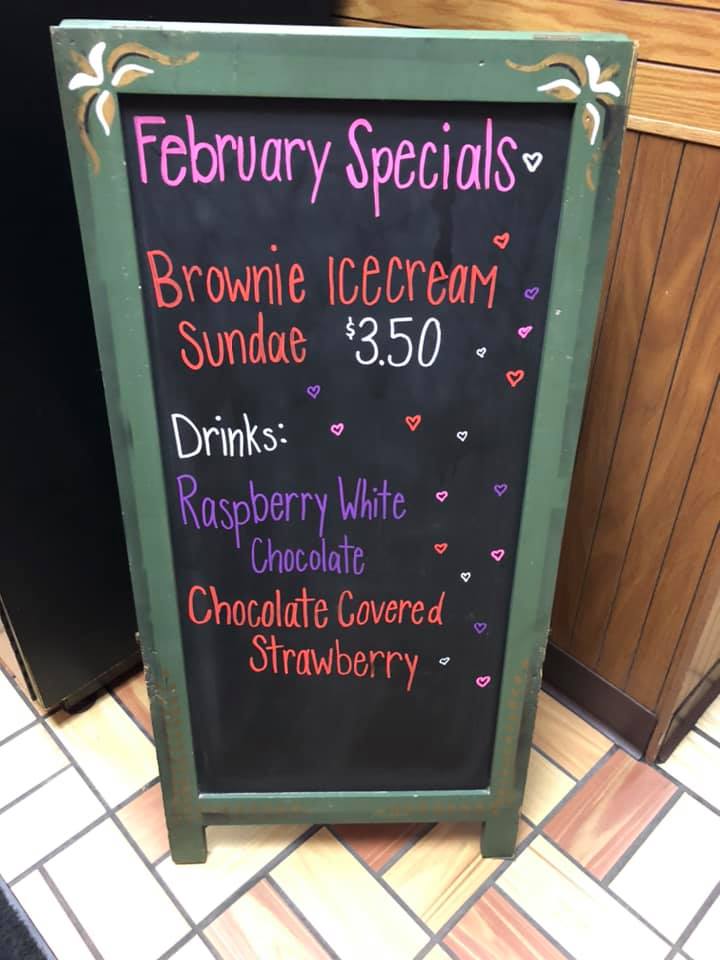 February Specials
Brownie Icecream
Sundae $3.50
Drinks:
Raspberry White
Chocolate
Chocolate Covered
Strawberry